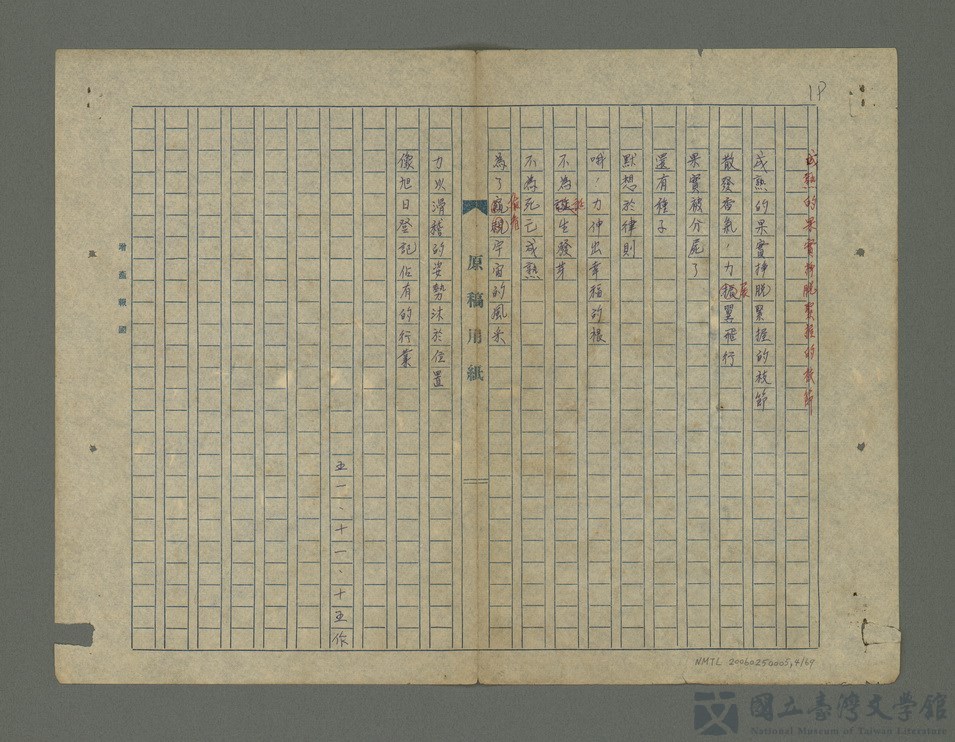 1P
成熟的果實掙脫緊握的枝節
成熟的果實掙脫緊握的枝節
散發香氣,力
展
翼飛行
果實被分屍了
還有種子
默想於律則
哦,力伸出幸福的根
不為誕生發芽
不為死亡成熟
為了
像看
宇宙的風采
力以滑稽的姿勢沐於位置
像旭日登記佔有的行業
五一、十一、十五作
原稿用紙
增產報國
NMTL 20060250005,4/69
國立臺灣文學館
National Museum of Taiwan Literature